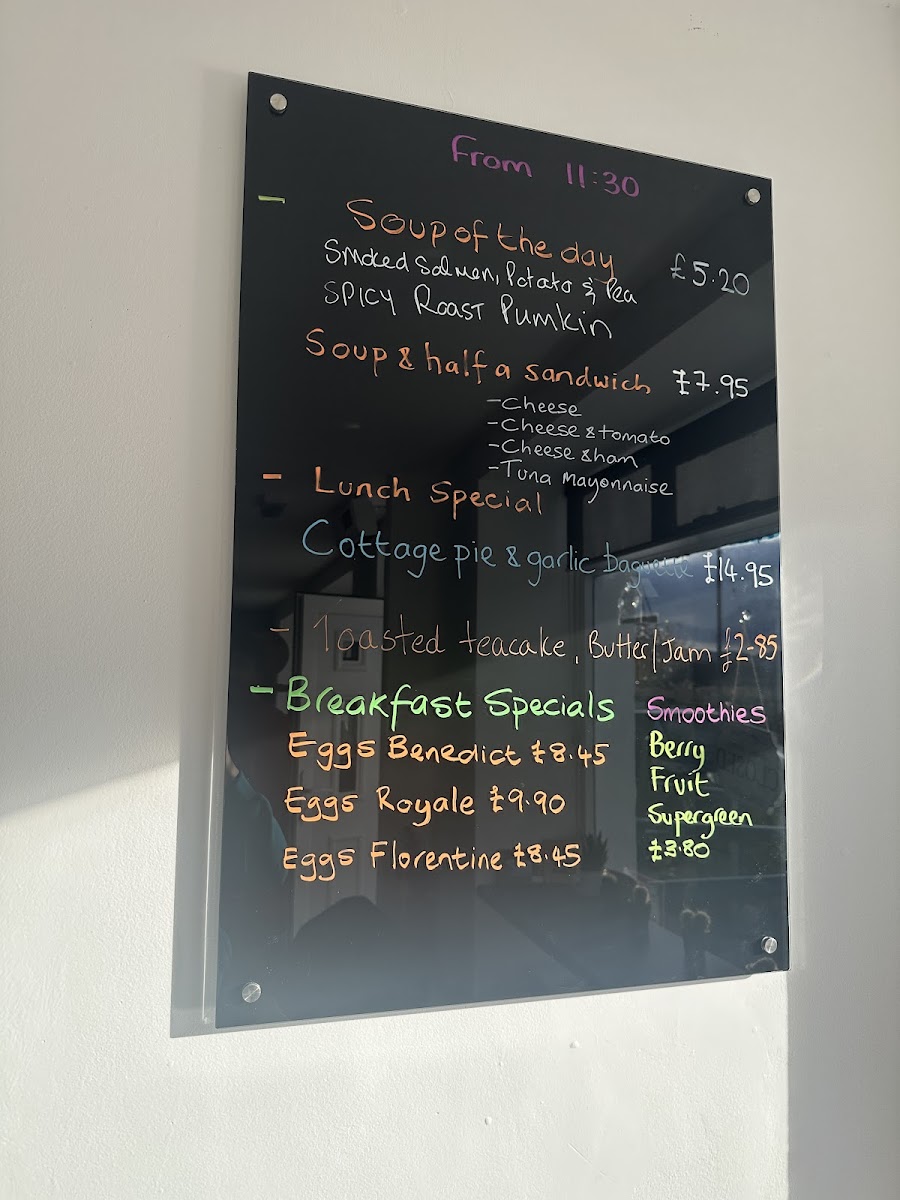 From 11:30
- Soup of the day £5.20
Smoked Salmon, Potato & Pea
SPICY ROAST Pumkin
Soup & half a sandwich £7.95
-Cheese
-Cheese & tomato
-Cheese & ham
-Tuna mayonnaise
- Lunch Special
Cottage pie & garlic baguette £14.95
- Toasted teacake, Butter/Jam £2-85
- Breakfast Specials
Eggs Benedict £8.45
Eggs Royale £9.90
Eggs Florentine £8.45
Smoothies
Berry
Fruit
Supergreen
£3.80